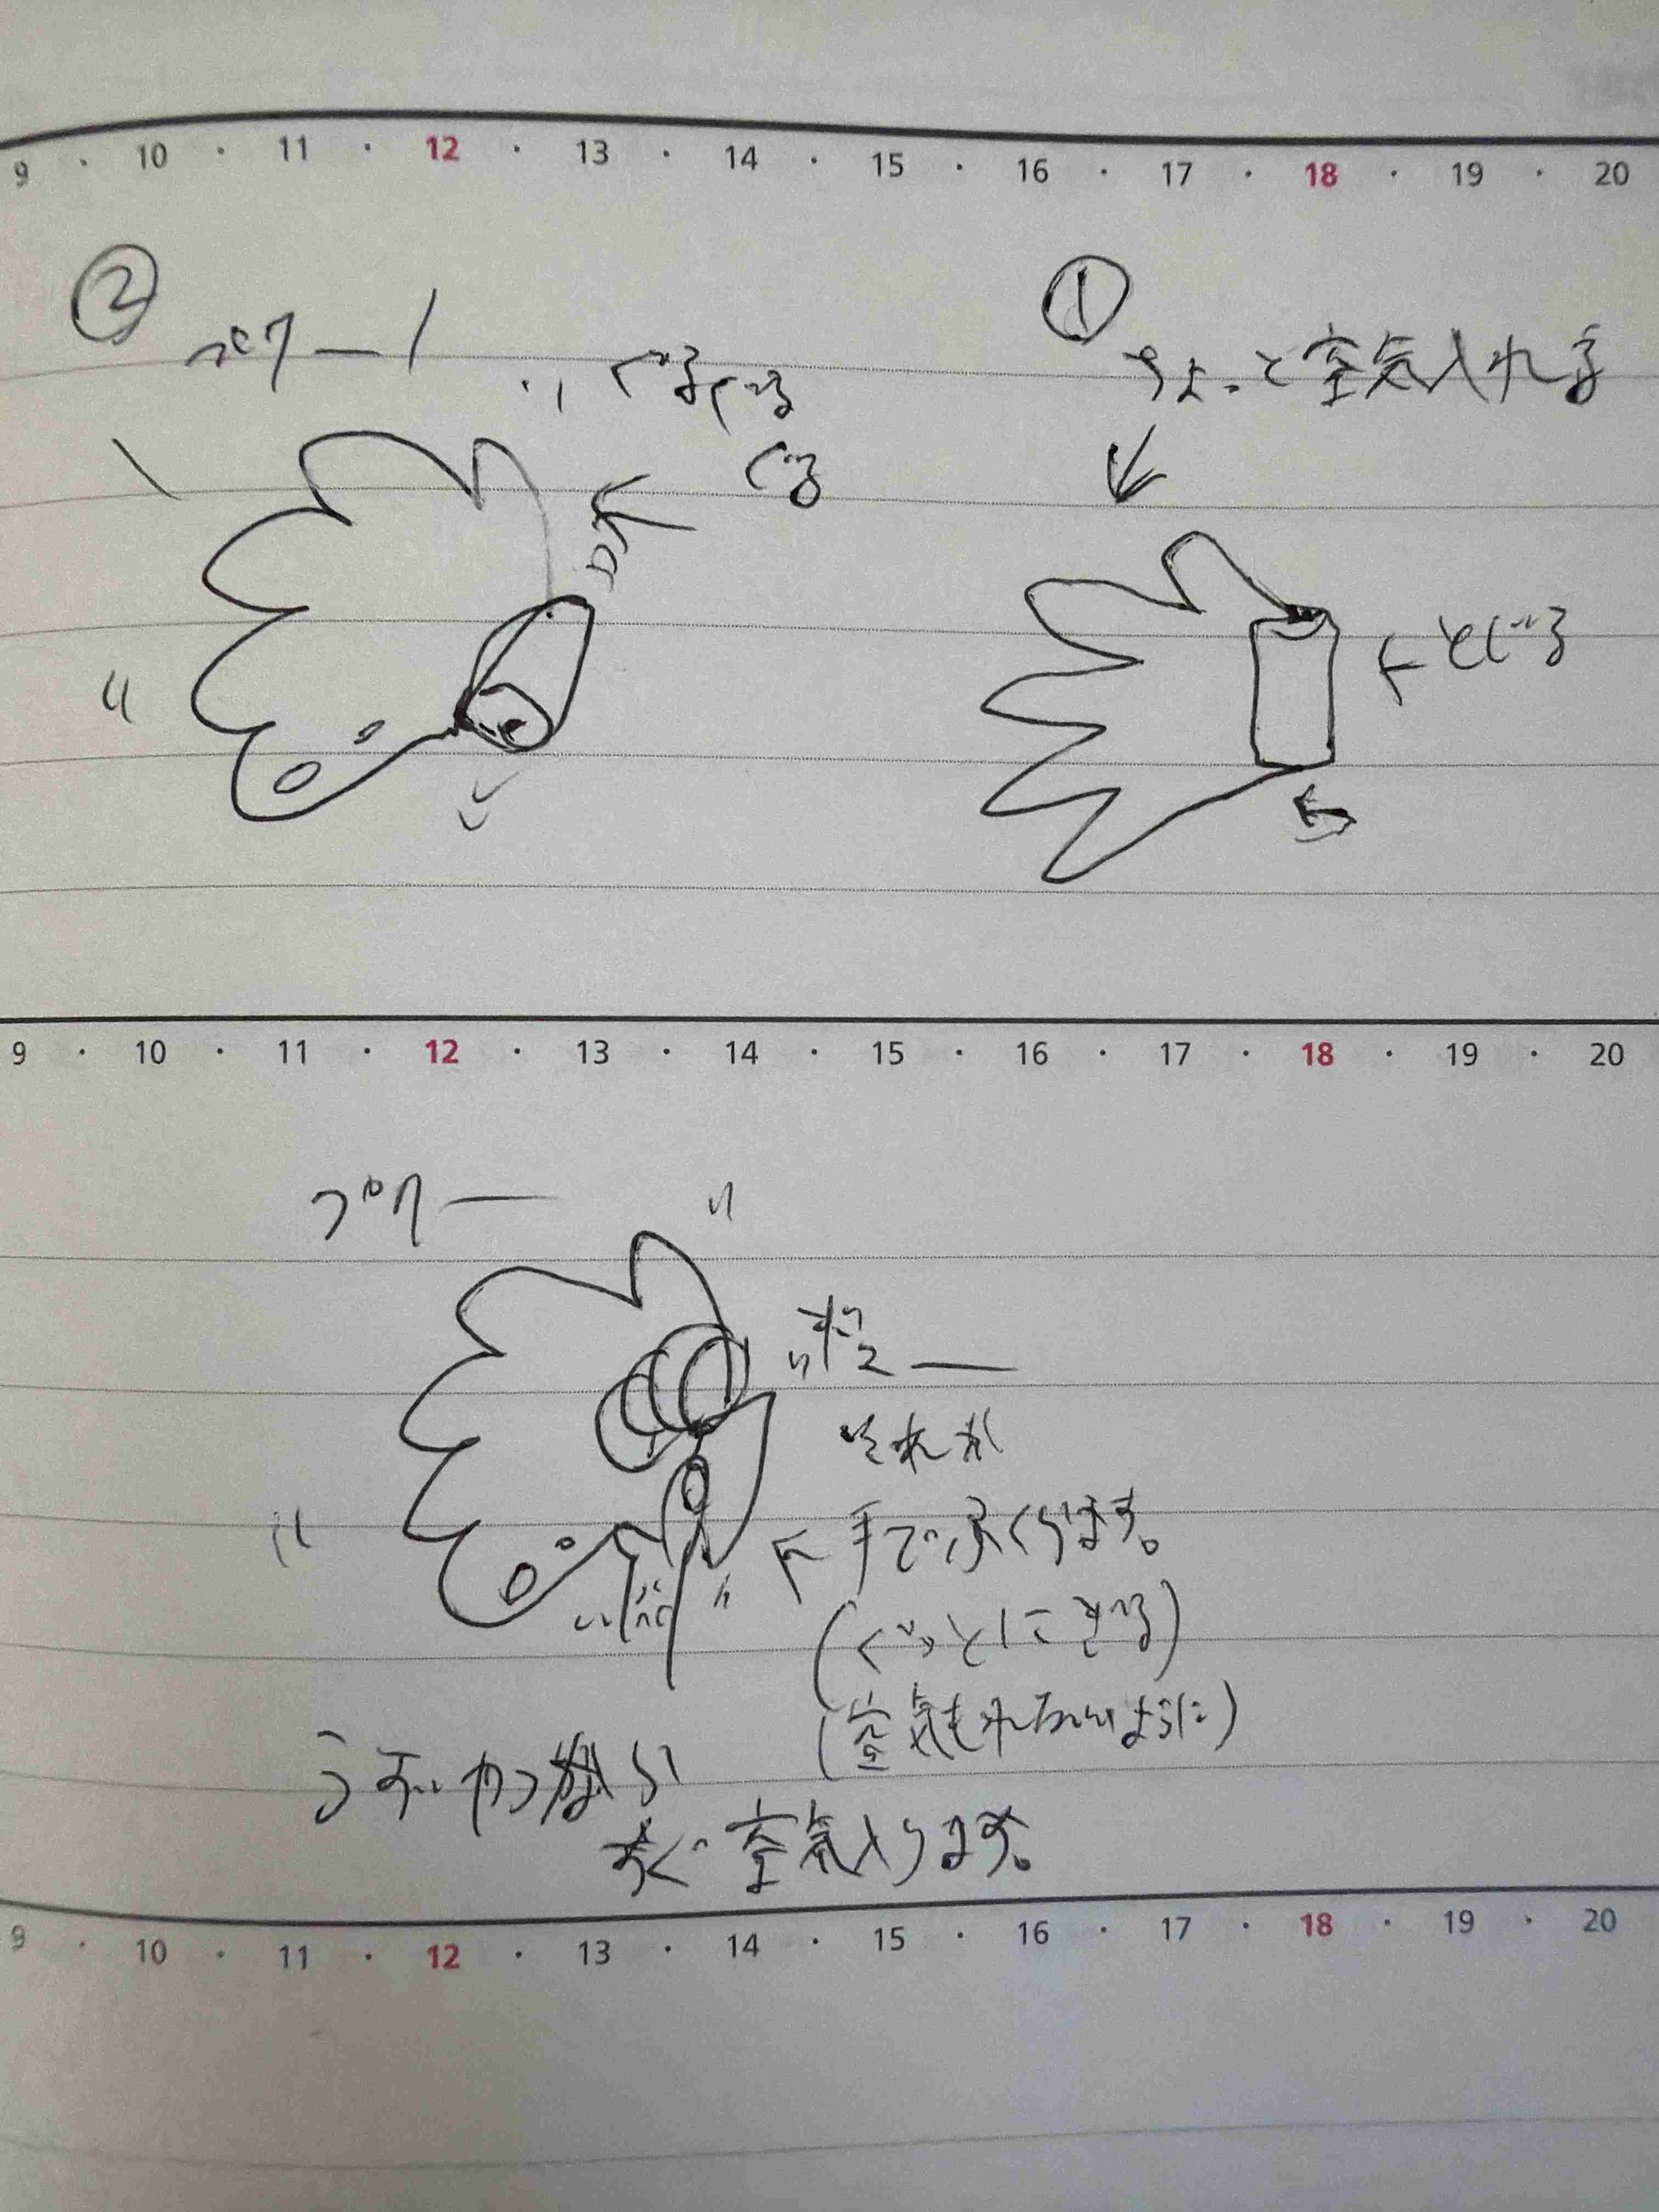 9 · 10 · 11 · 12 · 13 · 14 · 15 · 16 · 17 · 18 · 19 · 20
①
ちょっと空気入れる
←とじる
②
プクー
ぐるぐる
ぐる
9 · 10 · 11 · 12 · 13 · 14 · 15 · 16 · 17 · 18 · 19 · 20
プクー
それか
←手でふくらます。
(ぐっとにぎる)
(空気もれないように)
すぐ空気入ります。
9 · 10 · 11 · 12 · 13 · 14 · 15 · 16 · 17 · 18 · 19 · 20